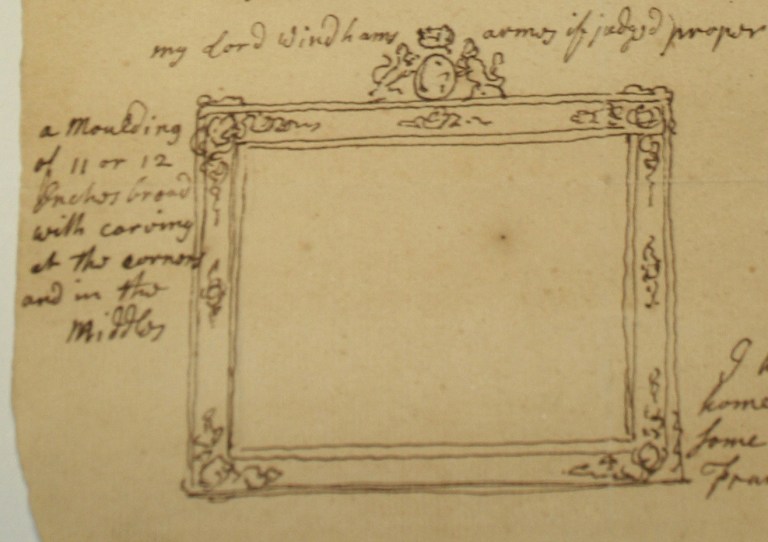 my Lord Windhams armes if judged proper
a Moulding
of 11 or 12
Inches broad
with carving
at the corners
and in the
Middles
I
home
some
Fra